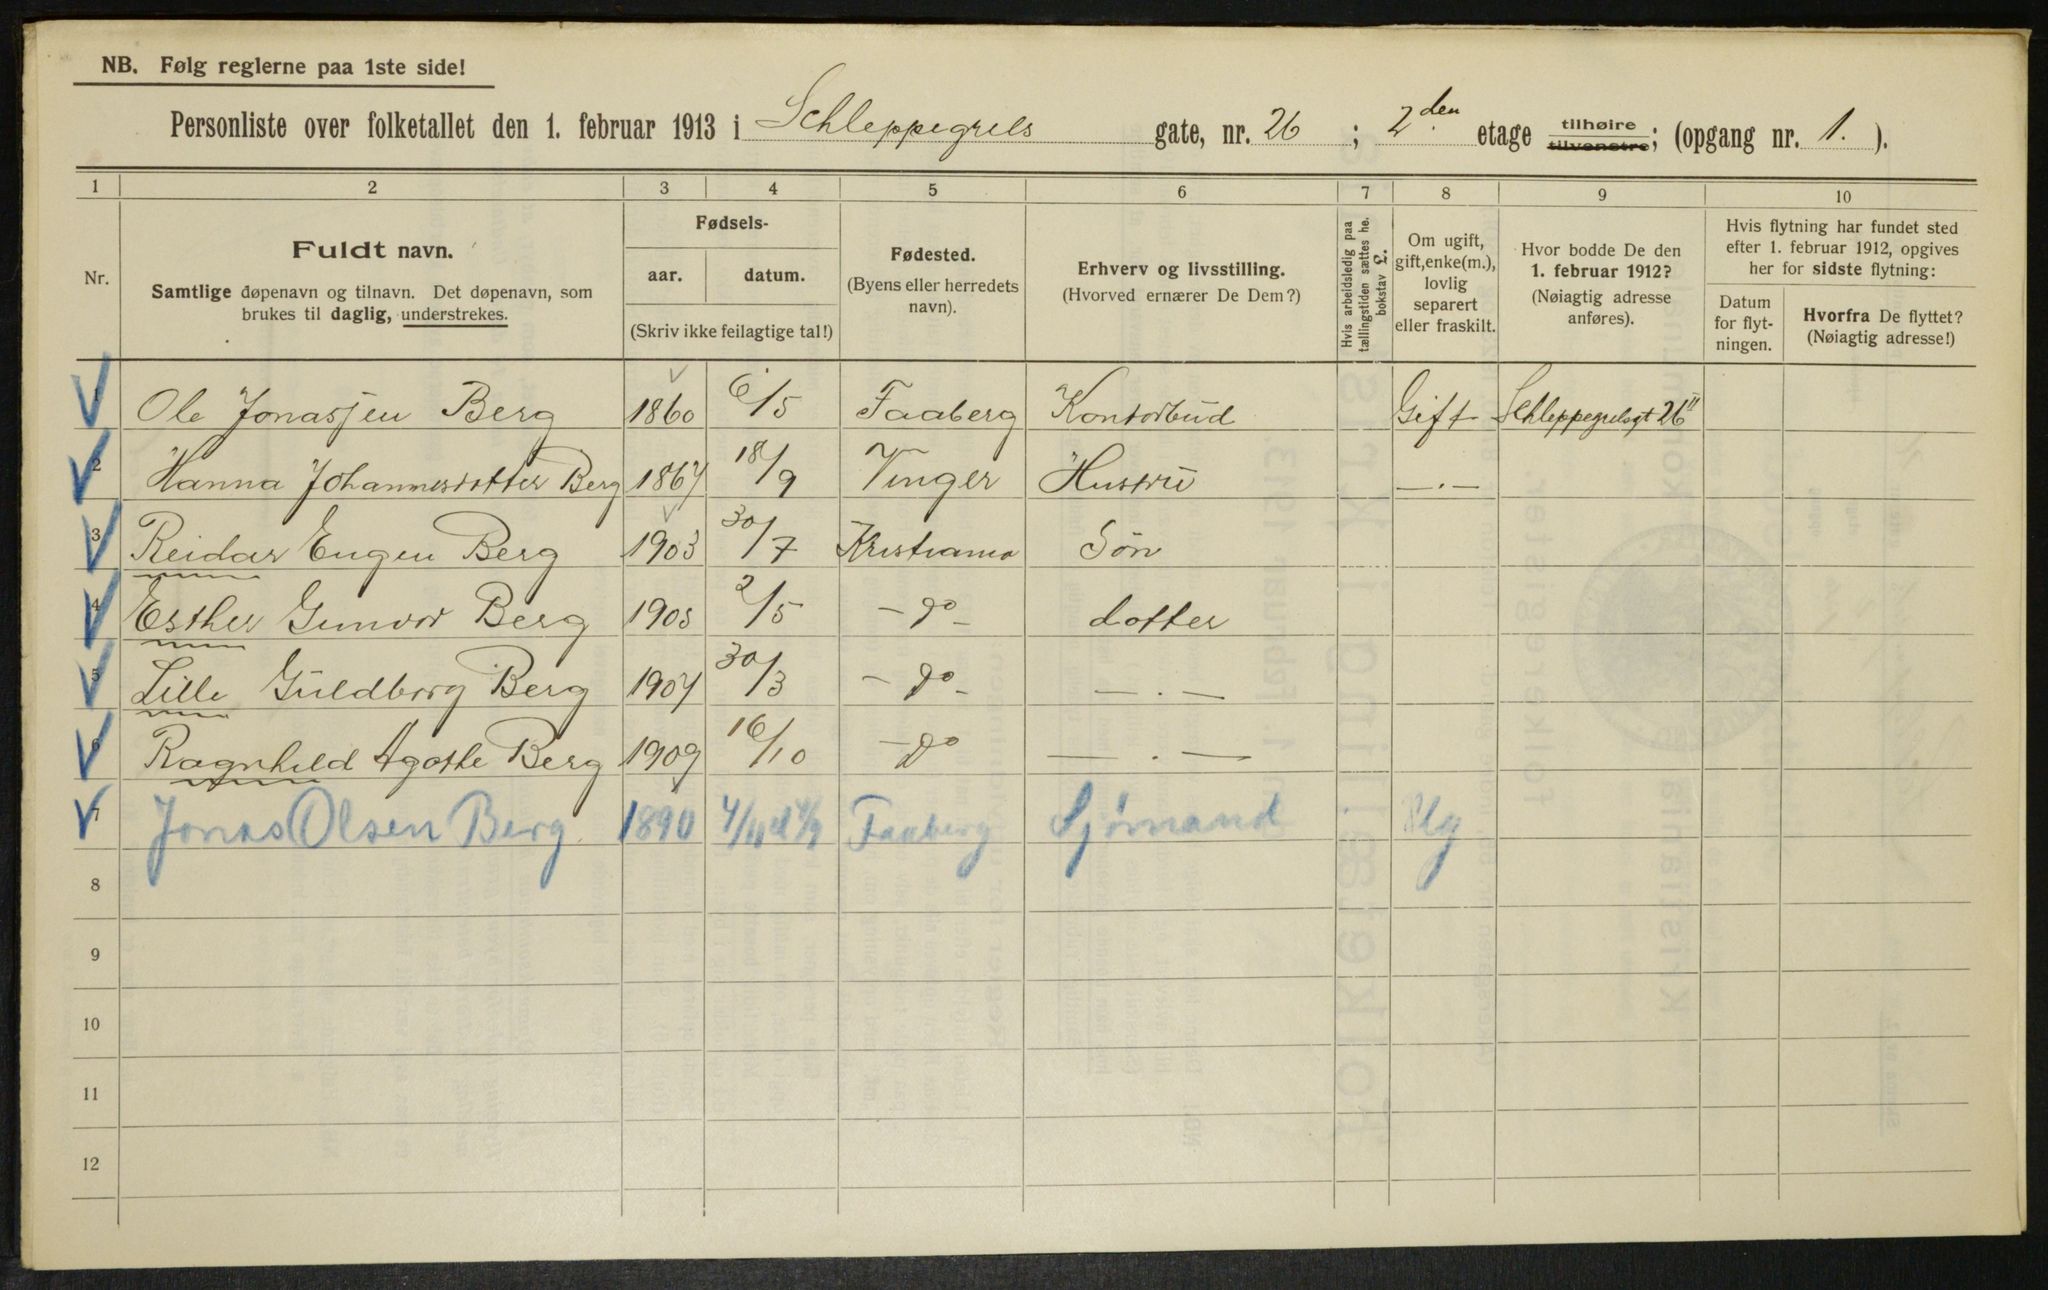 NB. Følg reglerne paa 1ste side!
Personliste over folketallet den 1. februar 1913 i Schleppegrels gate, nr. 26 ; 2den etage tilhøire tilvenstre; (opgang nr. 1. ).
1 2 3 4 5 6 7 8 9 10
Nr.
Fuldt navn.
Samtlige døpenavn og tilnavn. Det døpenavn, som
brukes til daglig, understrekes.
Fødsels-
aar. datum.
(Skriv ikke feilagtige tal!)
Fødested.
(Byens eller herredets
navn).
Erhverv og livsstilling.
(Hvorved ernærer De Dem?)
Hvis arbeidsledig paa
tællingstiden sættes he.
bokstav L.
Om ugift,
gift, enke(m.),
lovlig
separert
eller fraskilt.
Hvor bodde De den
1. februar 1912?
(Nøiagtig adresse
anføres).
Hvis flytning har fundet sted
efter 1. februar 1912, opgives
her for sidste flytning:
Datum
for flyt-
ningen.
Hvorfra De flyttet?
(Nøiagtig adresse!)
1 Ole Jonassen Berg 1860 6/5 Faaberg Kontorbud Gift Schleppegrelsgt 26 II
2 Hanna Johannesdotter Berg 1867 18/9 Vinger Hustru —.—
3 Reidar Eugen Berg 1903 30/7 Kristiania Søn
4 Esther Gunvor Berg 1905 2/5 — do — dotter
5 Lille Guldborg Berg 1907 30/3 — do — —.—
6 Ragnhild Agathe Berg 1909 16/10 — do —.—
7 Jonas Olsen Berg. 1890 Faaberg Sjømand Ug
8
9
10
11
12